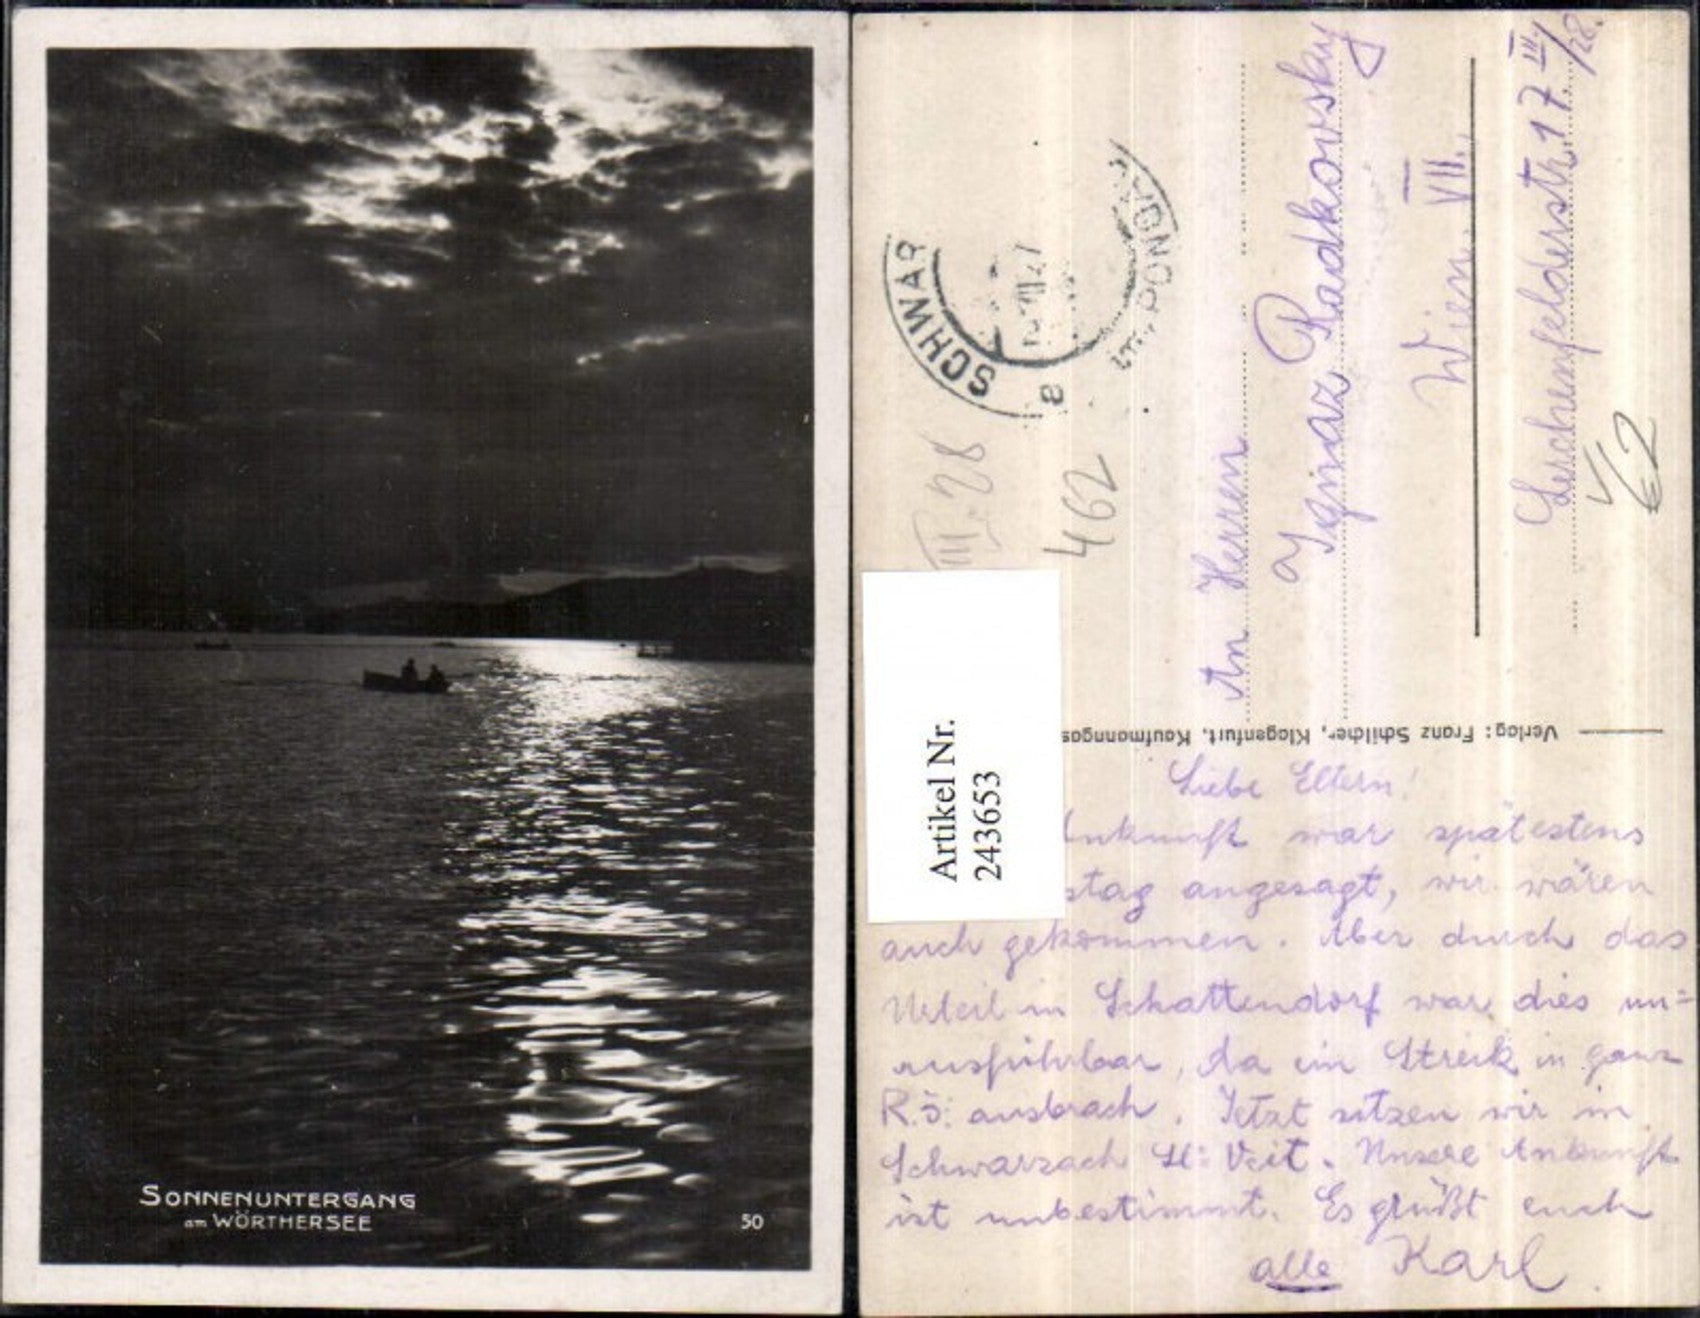 SONNENUNTERGANG
am WÖRTHERSEE
50
SCHWAR
462
III. 28
An Herren
Ignaz Radkovsky
Wien. VII.
Lerchenfelderstr. 17 III/28.
62
Artikel Nr.
243653
Verlag: Franz Schilcher, Klagenfurt, Kaufmanngas
Liebe Eltern!
Ankunft war spätestens
stag angesagt, wir wären
auch gekommen. Aber durch das
Urteil in Schattendorf war dies un=
ausführbar, da ein Streik in ganz
R.Ö. ausbrach. Jetzt sitzen wir in
Schwarzach St. Veit. Unsere Ankunft
ist unbestimmt. Es grüßt euch
alle Karl.